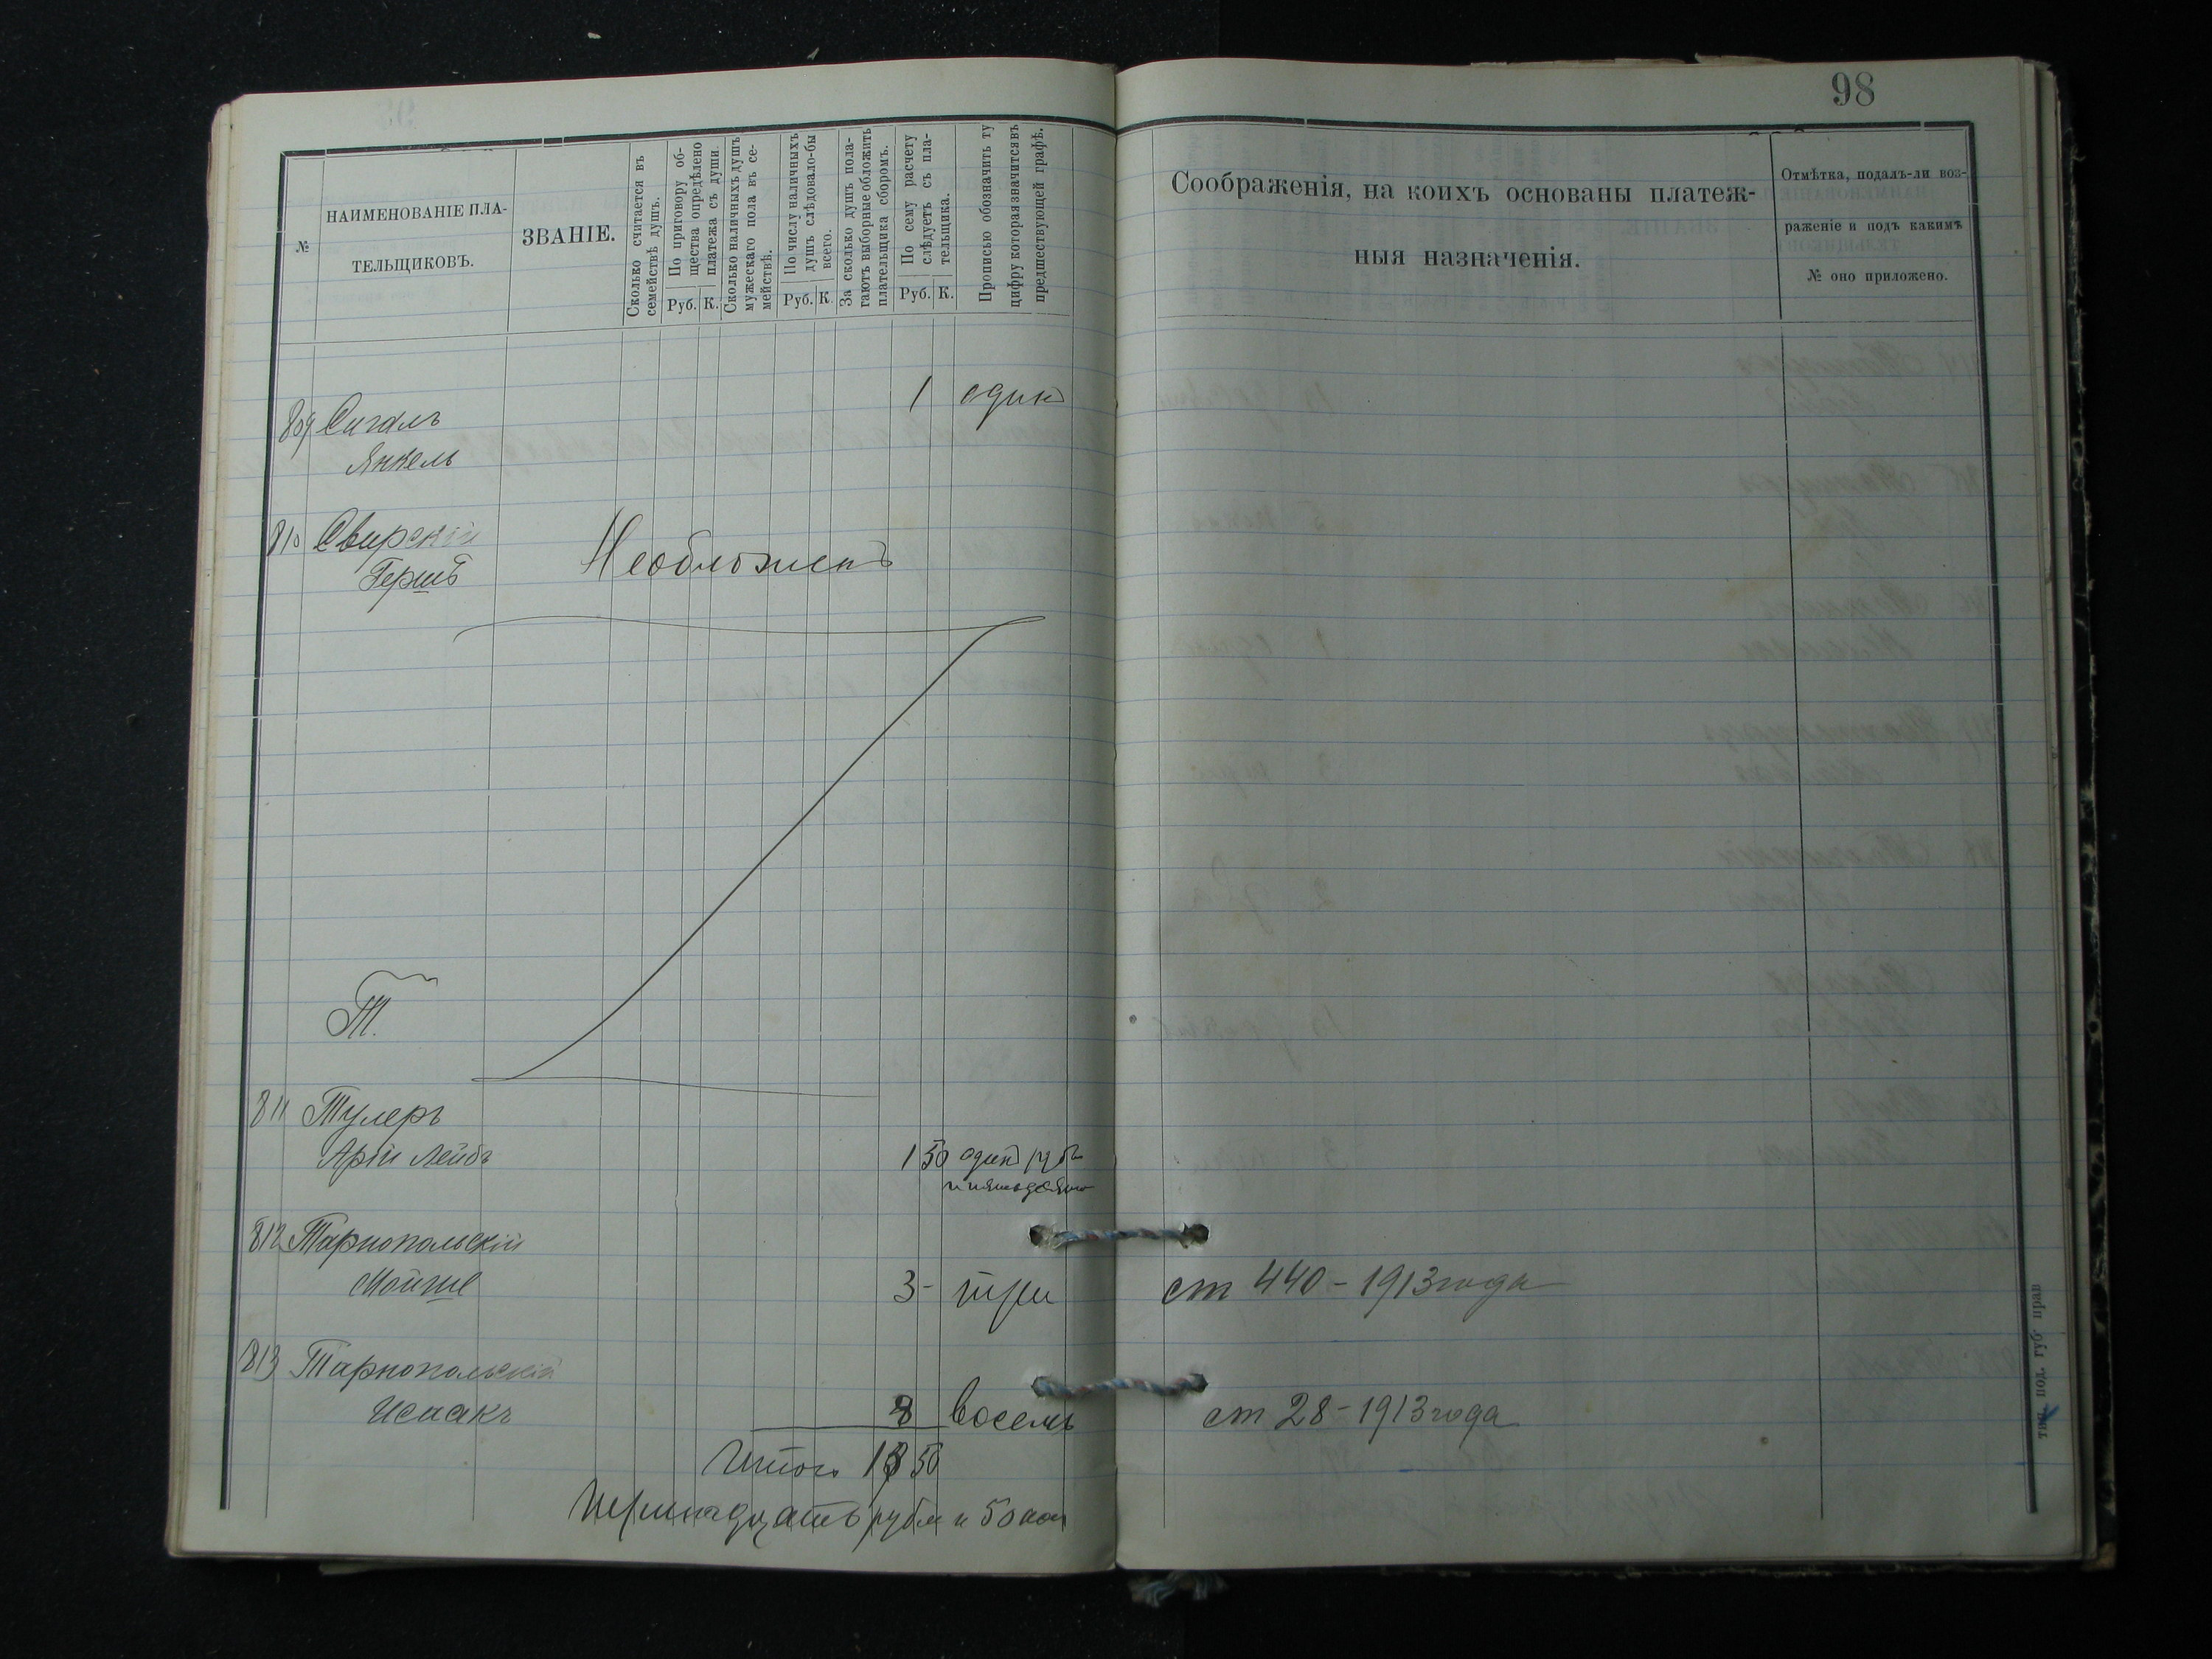 98
№
НАИМЕНОВАНІЕ ПЛА-
ТЕЛЬЩИКОВЪ.
ЗВАНІЕ.
Сколько считается въ
семействѣ душъ.
По приговору об-
щества опредѣлено
платежа съ души.
Руб. К.
Сколько наличныхъ душъ
мужескаго пола въ се-
мействѣ.
По числу наличныхъ
душъ слѣдовало-бы
всего.
Руб. К.
За сколько душъ пола-
гаютъ выборные обложить
плательщика сборомъ.
По сему расчету
слѣдуетъ съ пла-
тельщика.
Руб. К.
Прописью обозначить ту
цифру которая значится въ
предшествующей графѣ.
Соображенія, на коихъ основаны платеж-
ныя назначенія.
Отмѣтка, подалъ-ли воз-
раженіе и подъ какимъ
№ оно приложено.
809 Сигалъ
Янкель
1 один
810 Свирскій
Гершъ
Необложенъ
Т.
811 Тулеръ
Арій Лейбъ
1 50 один рубль
и пятьдесят
812 Тарнопольскій
Мойше
3- три
ст 440 - 1913 года
813 Тарнопольскій
Исаакъ
8 восемь
ст 28 - 1913 года
Итого 13 50
тринадцать рубл и 50 коп
тип. под. губ прав